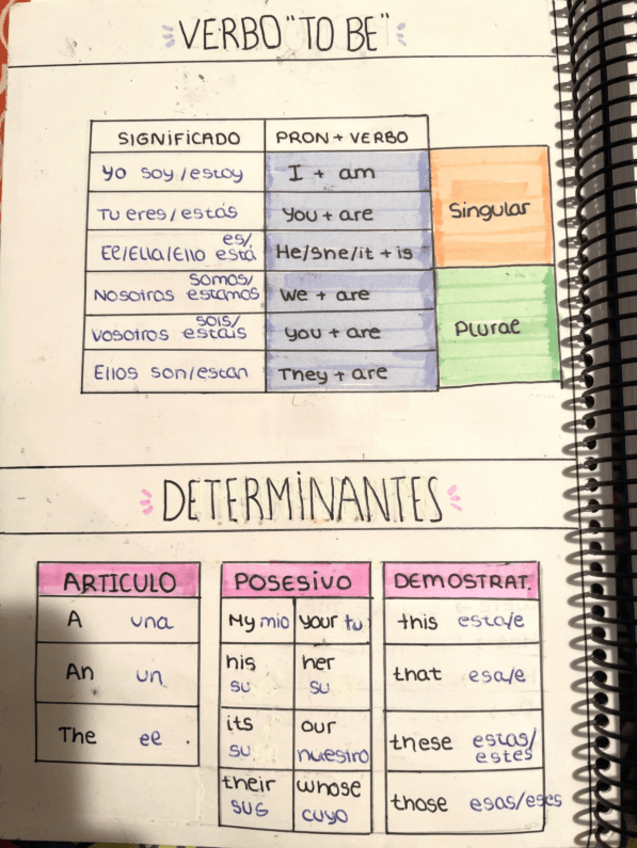 VERBO "TO BE"
SIGNIFICADO PRON + VERBO
Yo soy/estoy I + am
Tu eres/estás You + are
Singular
es/
El/Ella/Ello está He/She/it + is
somos/
Nosotros estamos We + are
sois/
Vosotros estais you + are
Plural
Ellos son/estan They + are
DETERMINANTES
ARTICULO
A una
An un
The el
POSESIVO
My mio your tu
his her
su su
its our
su nuestro
their whose
sus cuyo
DEMOSTRAT.
this esta/e
that esa/e
these estas/
estes
those esas/eses